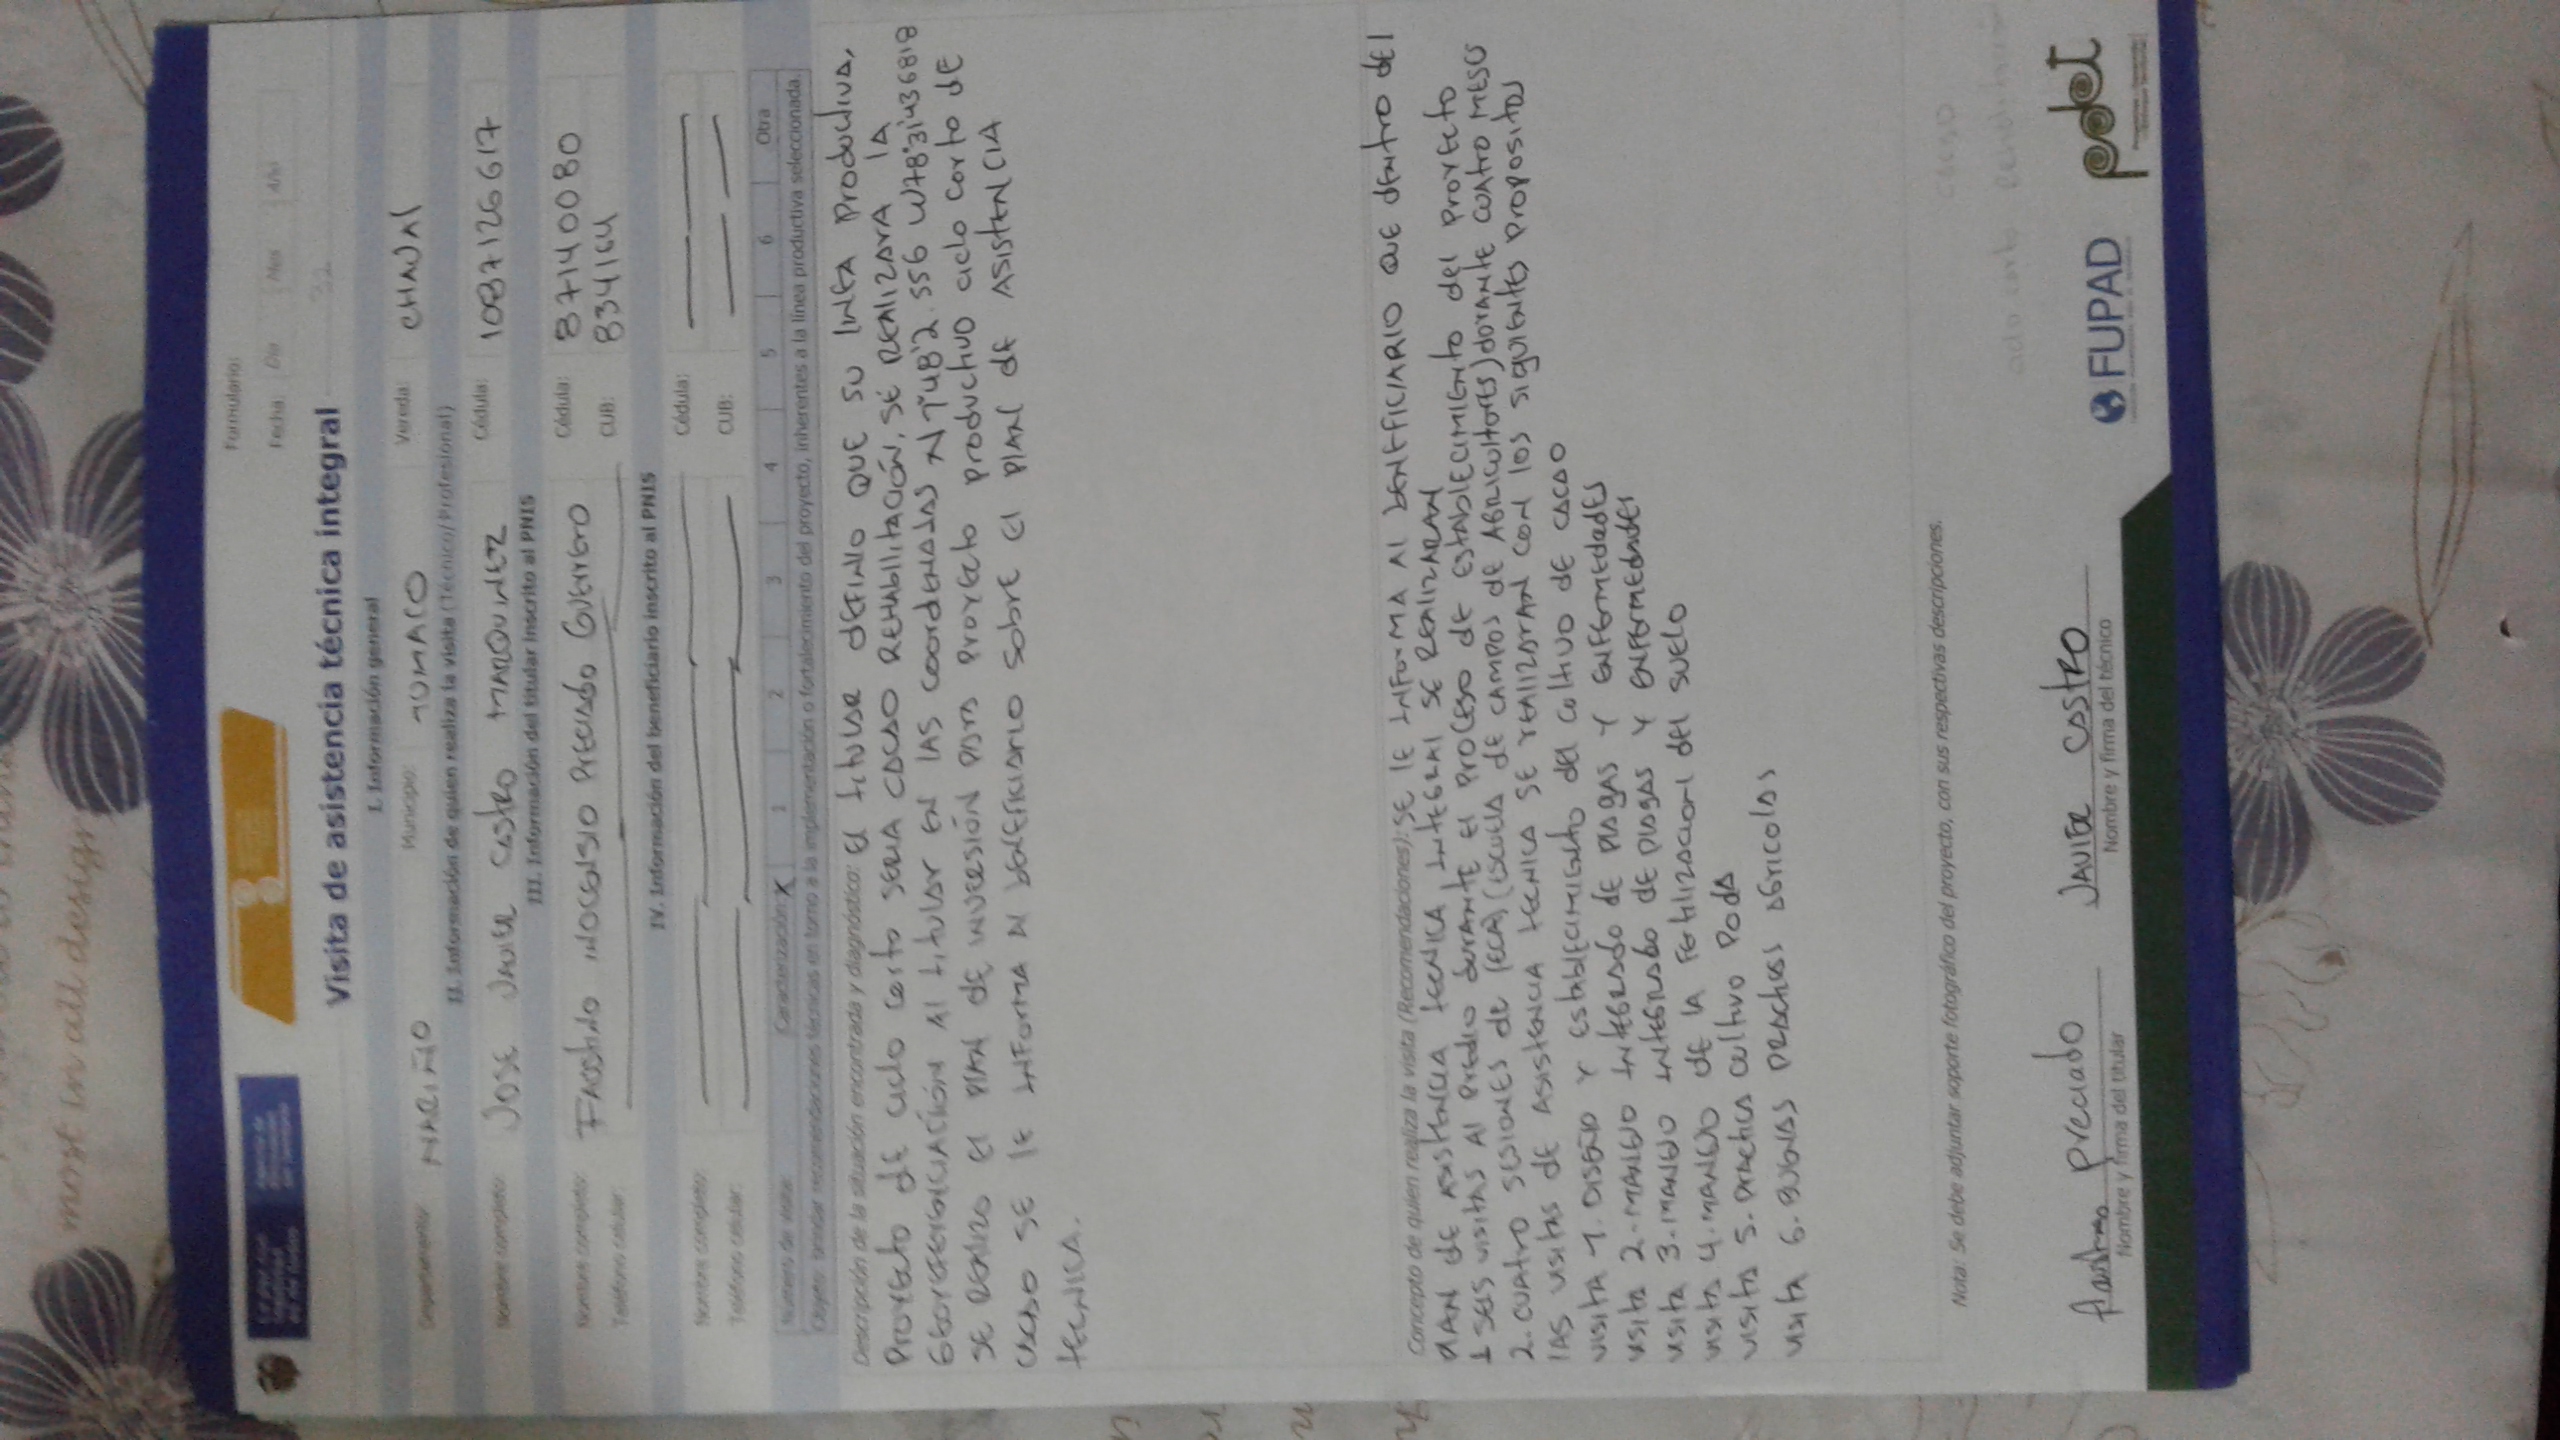 Formulario:
Fecha: Día Mes Año
Visita de asistencia técnica integral
I. Información general
Departamento: NARIÑO Municipio: TUMACO Vereda: CHAJAL
II. Información de quien realiza la visita (Técnico/Profesional)
Nombre completo: JOSE JAVIER CASTRO MARQUINEZ Cédula: 1087126617
III. Información del titular inscrito al PNIS
Nombre completo: FAOSTINO INOCENSIO PRECIADO GUERRERO Cédula: 87140080
Teléfono celular: CUB: 834164
IV. Información del beneficiario inscrito al PNIS
Nombre completo: Cédula:
Teléfono celular: CUB:
Número de visita: Caracterización: X 1 2 3 4 5 6 Otra
Objeto: brindar recomendaciones técnicas en torno a la implementación o fortalecimiento del proyecto, inherentes a la línea productiva seleccionada.
Descripción de la situación encontrada y diagnóstico: El titular DEFINIO QUE SU LINEA PRODUCTIVA,
PROYECTO DE CICLO CORTO SERIA CACAO REHABILITACIÓN, SE REALIZARA LA
GEORREFERENCIACIÓN AL TITULAR EN LAS COORDENADAS
SE REALIZO EL PLAN DE INVERSIÓN PARA PROYECTO PRODUCTIVO CICLO CORTO DE
CACAO SE LE INFORMA AL BENEFICIARIO SOBRE EL PLAN DE ASISTENCIA
TECNICA.
Concepto de quien realiza la visita (Recomendaciones): SE LE INFORMA AL BENEFICIARIO QUE DENTRO DEL
PLAN DE ASISTENCIA TECNICA INTEGRAL SE REALIZARAN
1 SEIS VISITAS AL PREDIO DURANTE EL PROCESO DE ESTABLECIMIENTO DEL PROYECTO
2. CUATRO SESIONES DE (ECA) (ESCUELA DE CAMPOS DE AGRICULTORES) DORANTE CUATRO MESES
LAS VISITAS DE ASISTENCIA TECNICA SE REALIZARAN CON LOS SIGUIENTES PROPOSITOS
VISITA 1. DISEÑO Y ESTABLECIMIENTO DEL CULTIVO DE CACAO
VISITA 2. MANEJO INTEGRADO DE PLAGAS Y ENFERMEDADES
VISITA 3. MANEJO INTEGRADO DE PLAGAS Y ENFERMEDADES
VISITA 4. MANEJO DE LA FERTILIZACION DEL SUELO
VISITA 5. PRACTICA CULTIVO PODA
VISITA 6. BUENAS PRACTICAS AGRICOLAS
Nota: Se debe adjuntar soporte fotográfico del proyecto, con sus respectivas descripciones.
Faustino Preciado JAVIER CASTRO
Nombre y firma del titular Nombre y firma del técnico
FUPAD
pdet
most in all design